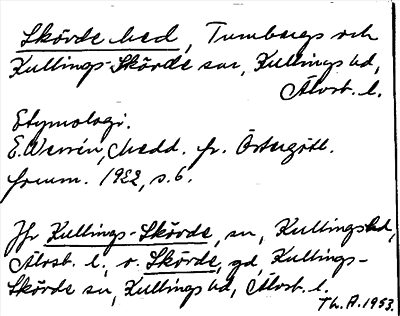 Skövde hed, Tumbergs och
Kullings-Skövde snr, Kullings hd,
Älvsb. l.
Etymologi.
E. Wessén, Medd. fr. Östergötl.
fornm. 1922, s. 6.
Jfr Kullings-Skövde, sn, Kullings hd,
Älvsb. l., o. Skövde, gd, Kullings-
Skövde sn, Kullings hd, Älvsb. l.
Th. A. 1953.